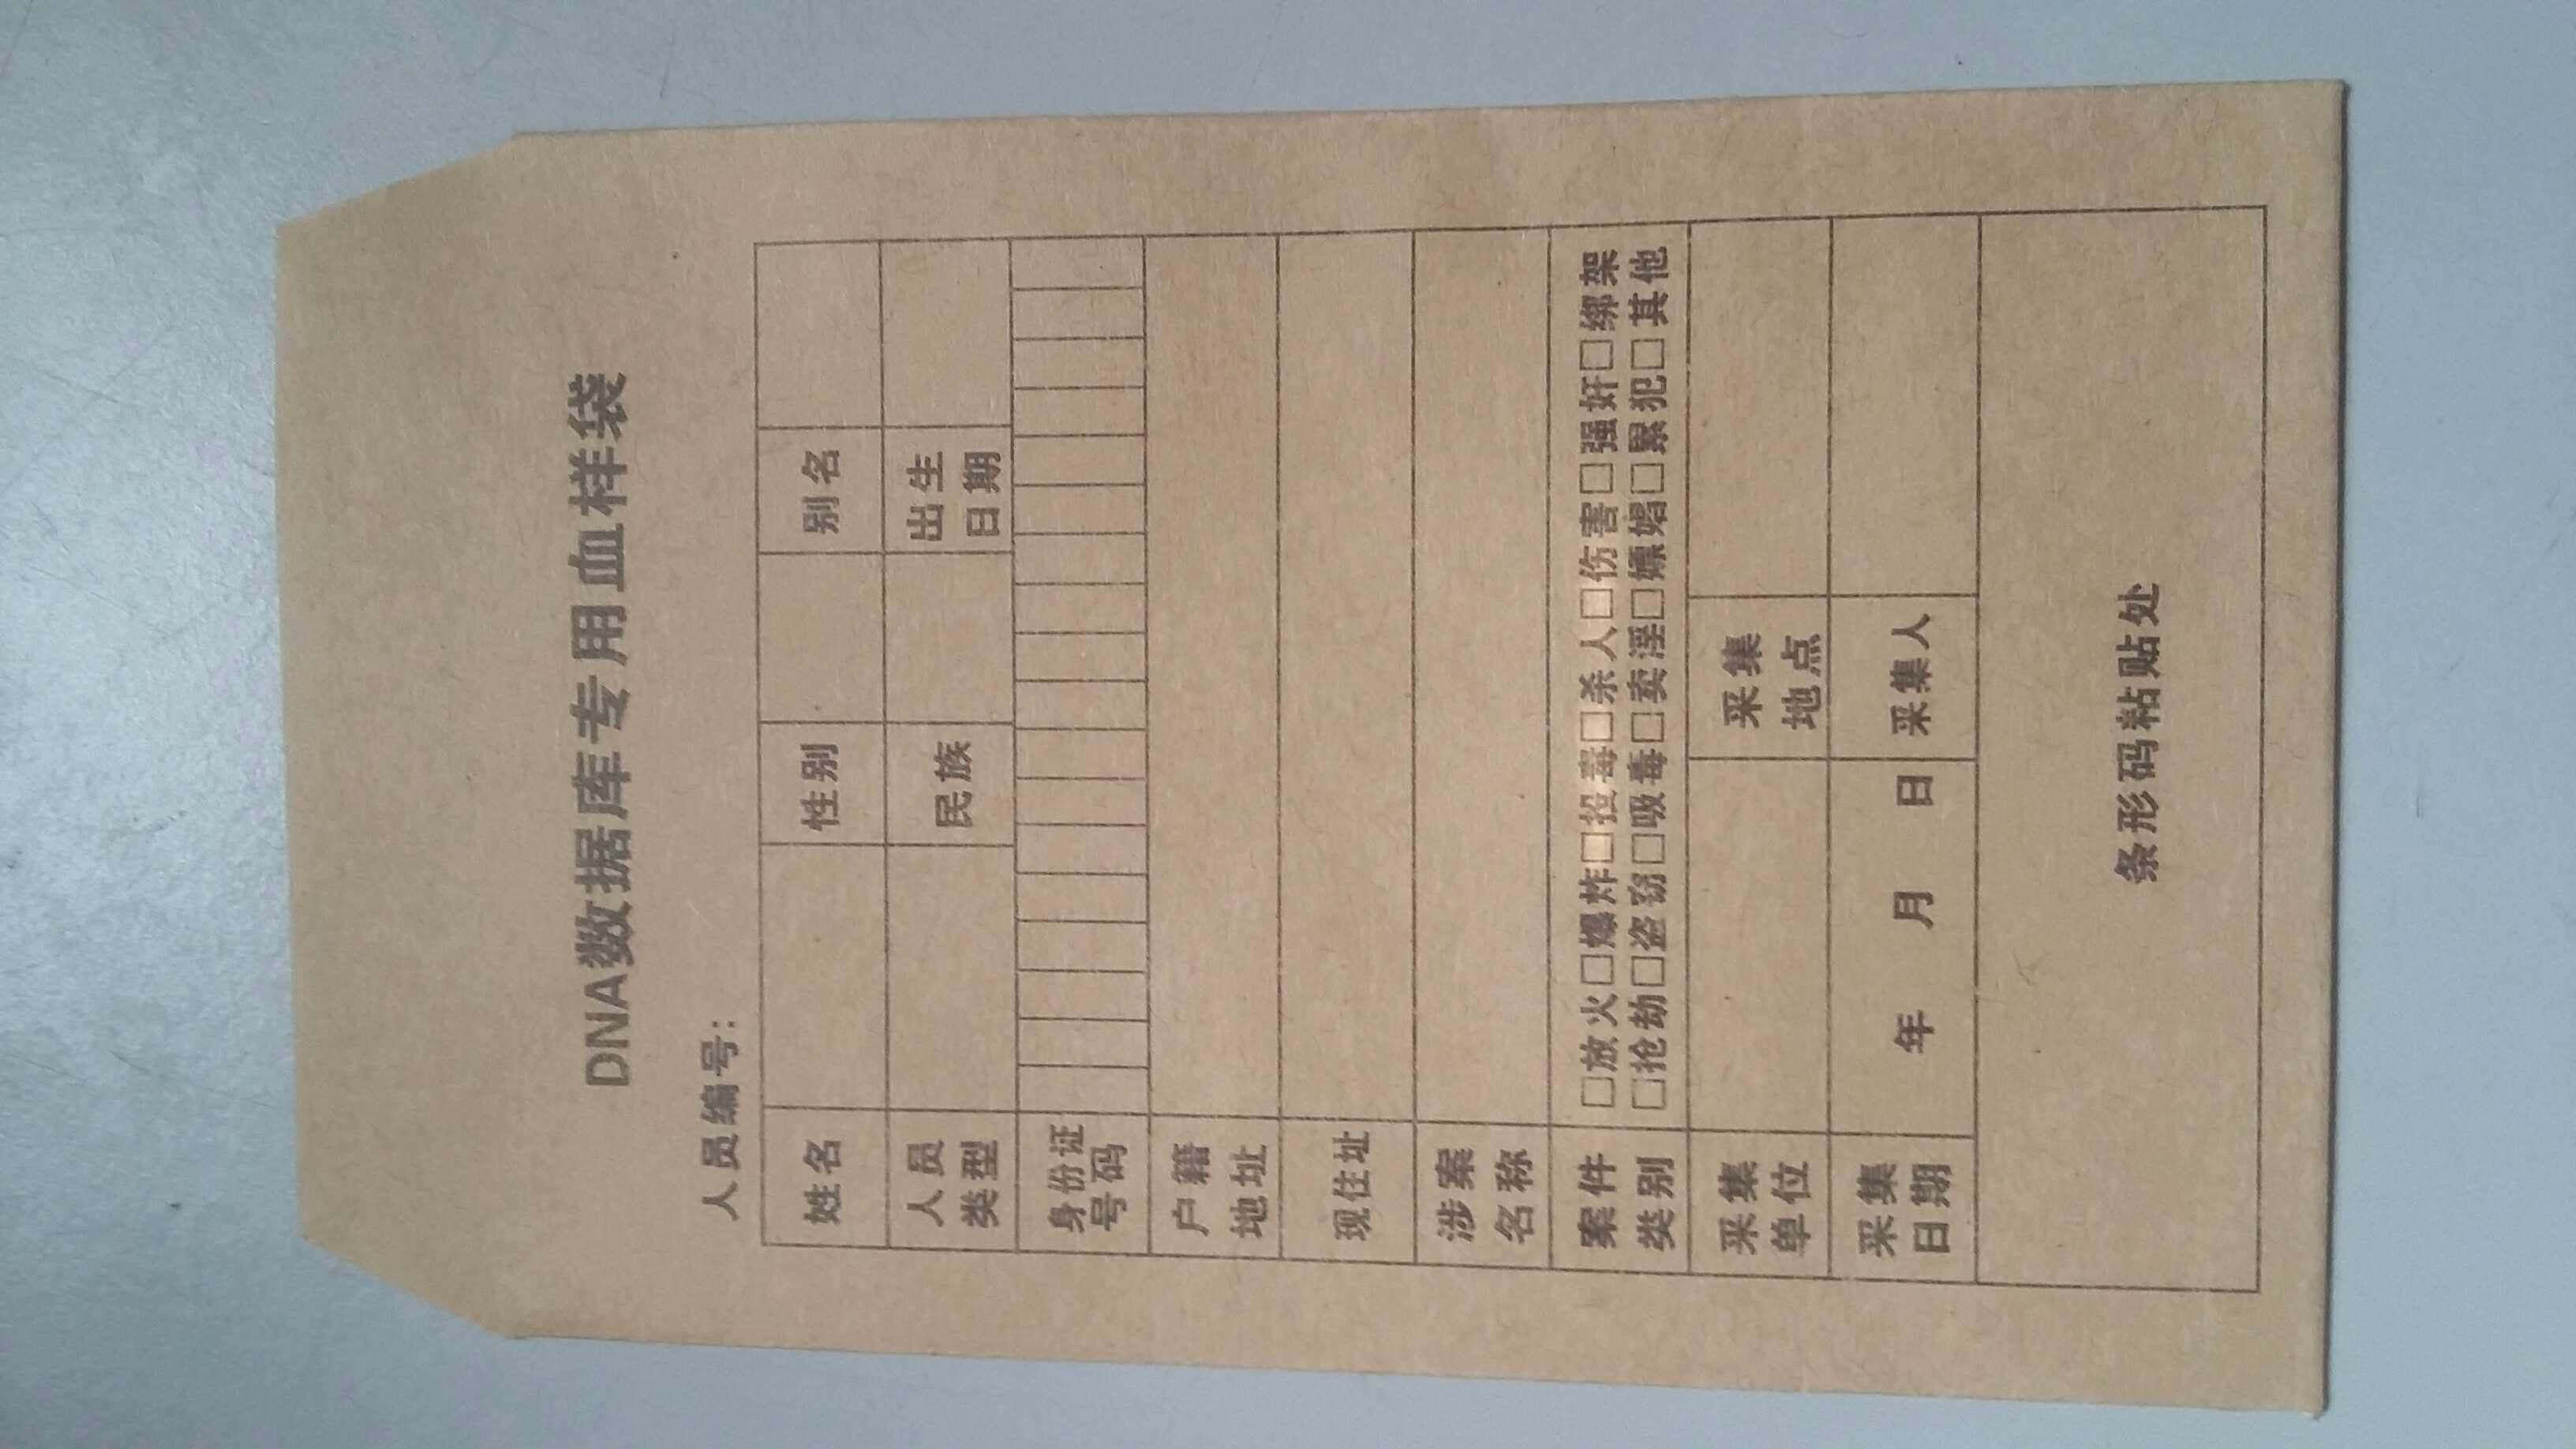 DNA数据库专用血样袋
人员编号:
姓名 性别 别名
人员类型 民族 出生日期
身份证号码
户籍地址
现住址
涉案名称
案件类别 □放火□爆炸□投毒□杀人□伤害□强奸□绑架
□抢劫□盗窃□吸毒□卖淫□嫖娼□累犯□其他
采集单位 采集地点
采集日期 年 月 日 采集人
条形码粘贴处